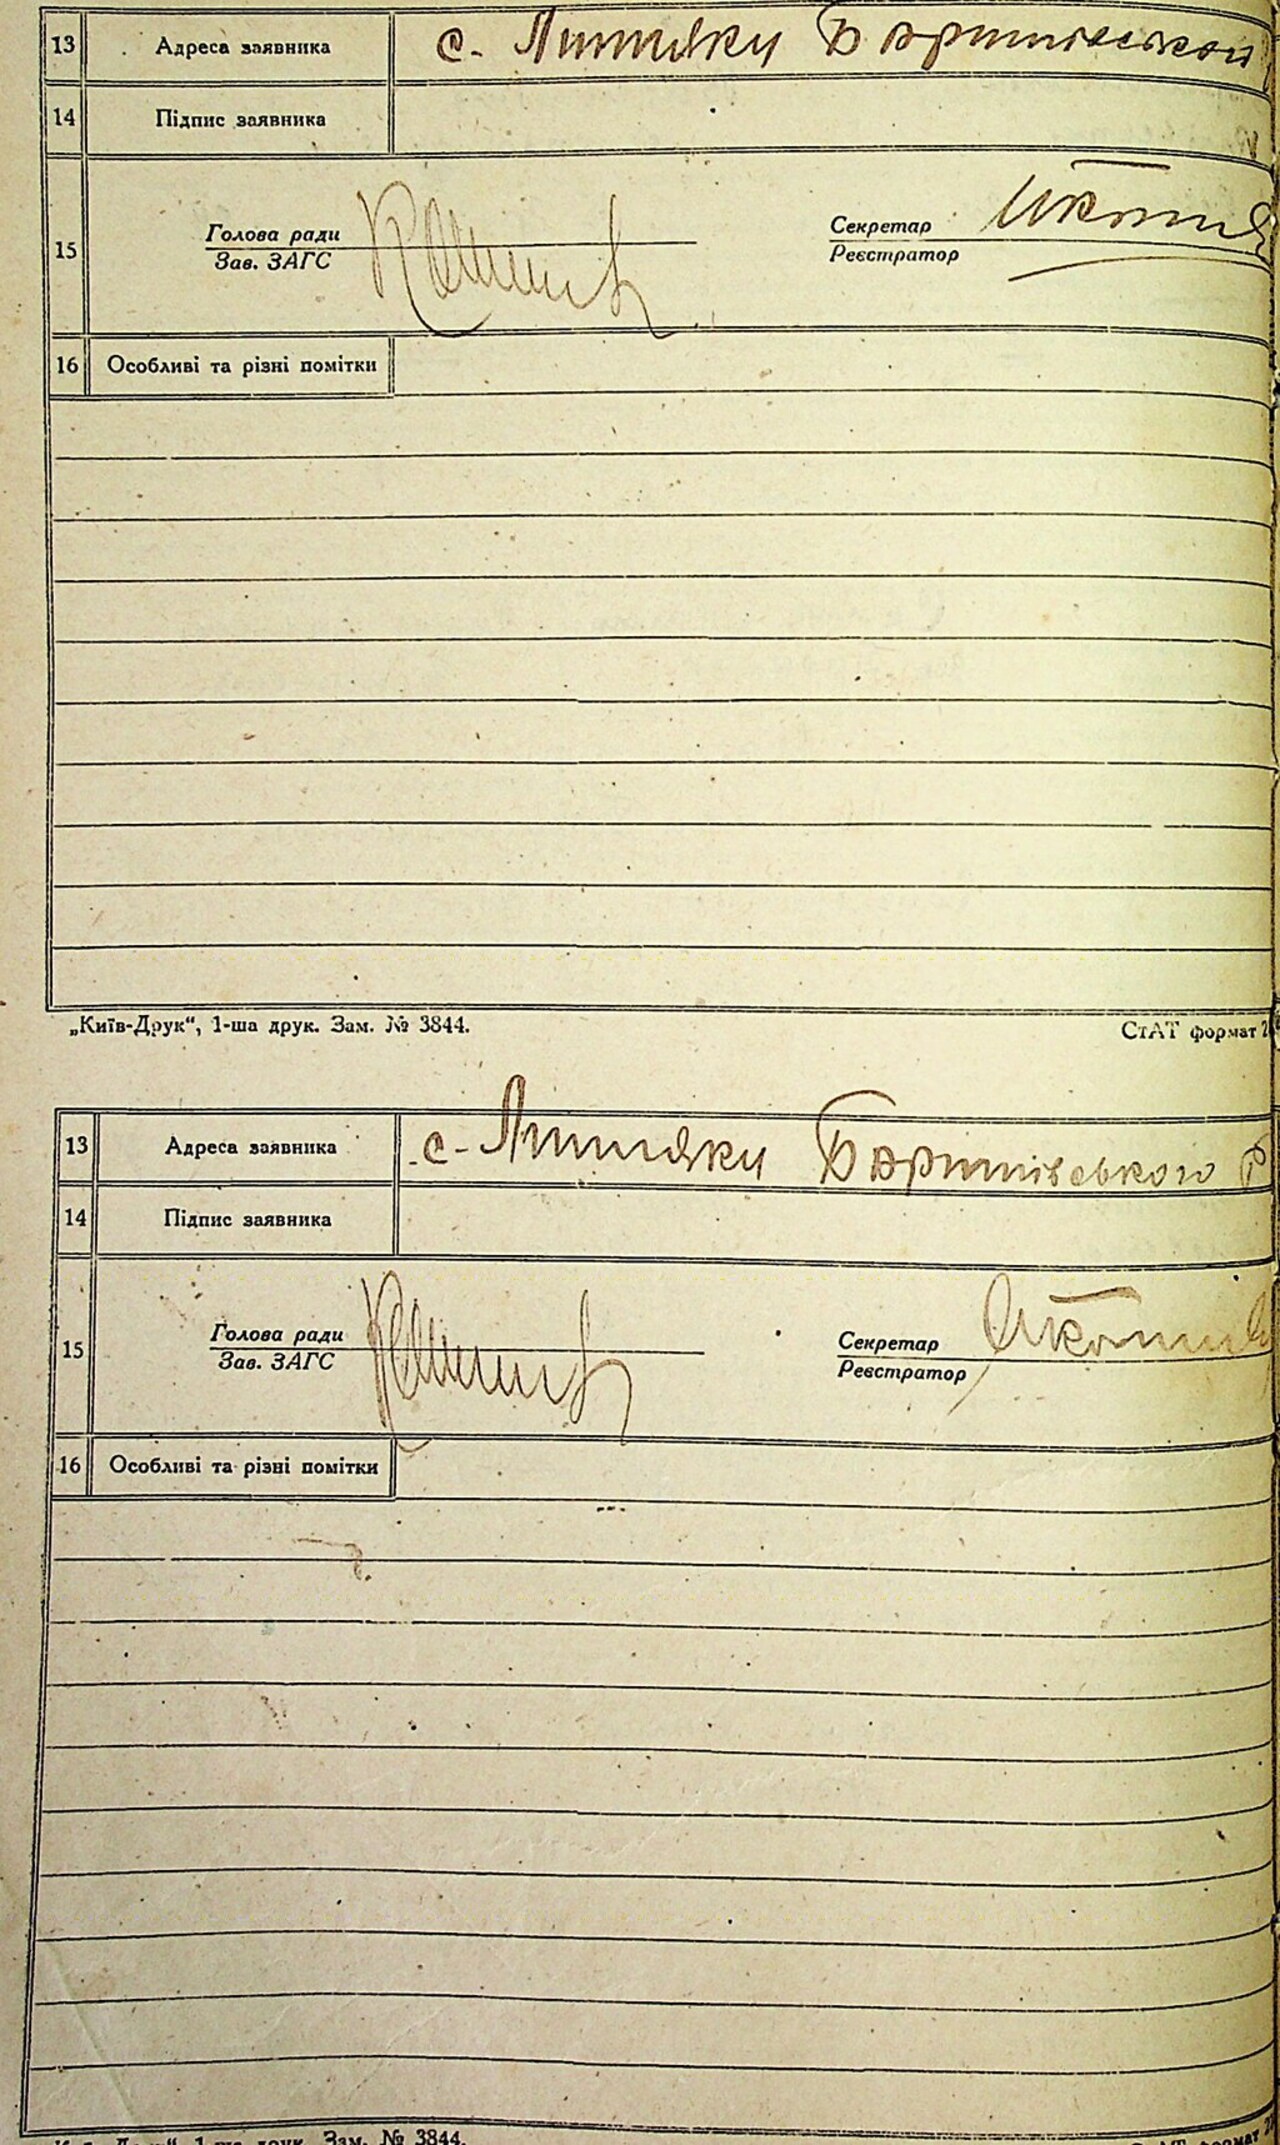 13 Адреса заявника с. Липняки Баришівськой
14 Підпис заявника
15 Голова ради Секретар
Зав. ЗАГС Реєстратор
16 Особливі та різні помітки
„Київ-Друк“, 1-ша друк. Зам. № 3844. СтАТ формат
13 Адреса заявника с. Липняки Баришівського Р
14 Підпис заявника
15 Голова ради Секретар
Зав. ЗАГС Реєстратор
16 Особливі та різні помітки
1-ша друк. Зам. № 3844. формат